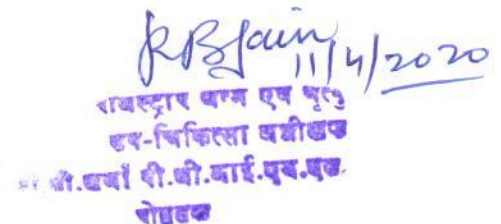 RBJain
11/4/2020
रजिस्ट्रार जन्म एवं मृत्यु
उप-चिकित्सा अधीक्षक
शर्मा पी.जी.आई.एम.एस.
रोहतक